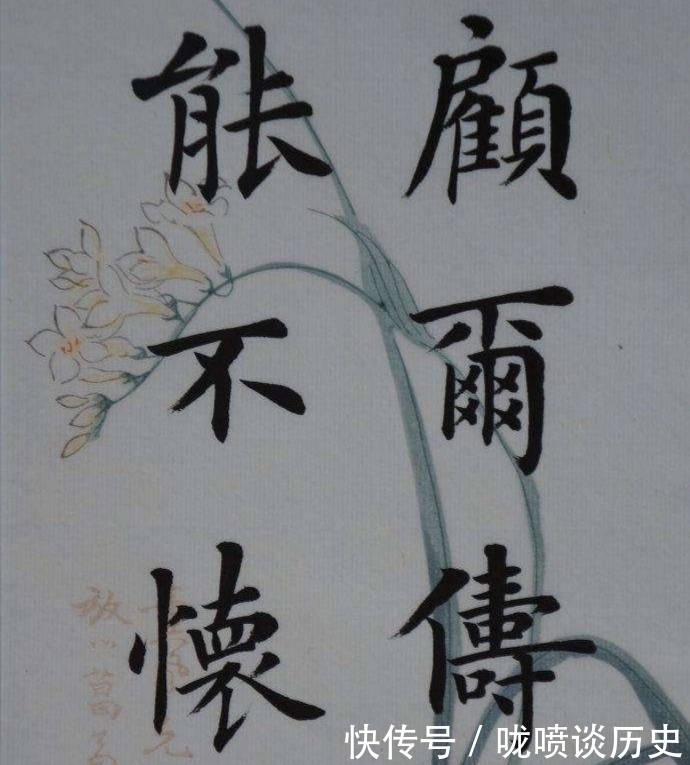 顧爾儔
能不懷
快传号 / 咙喷谈历史